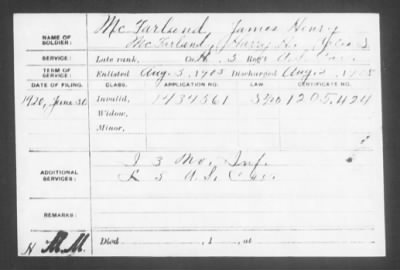 NAME OF SOLDIER: McFarland, James Henry
McFarland, Harry H.
SERVICE: Late rank, Co. H. 3 Reg't U.S. Cav.
TERM OF SERVICE: Enlisted Aug. 3, 1905 Discharged Aug. 2, 1908
DATE OF FILING. CLASS. APPLICATION NO. LAW CERTIFICATE NO.
1920, June 30 Invalid, 1434561 1205,424
Widow,
Minor,
ADDITIONAL SERVICES: I 3 Mo. Inf.
L 5 U.S. Cav.
REMARKS:
Died , 1 , at